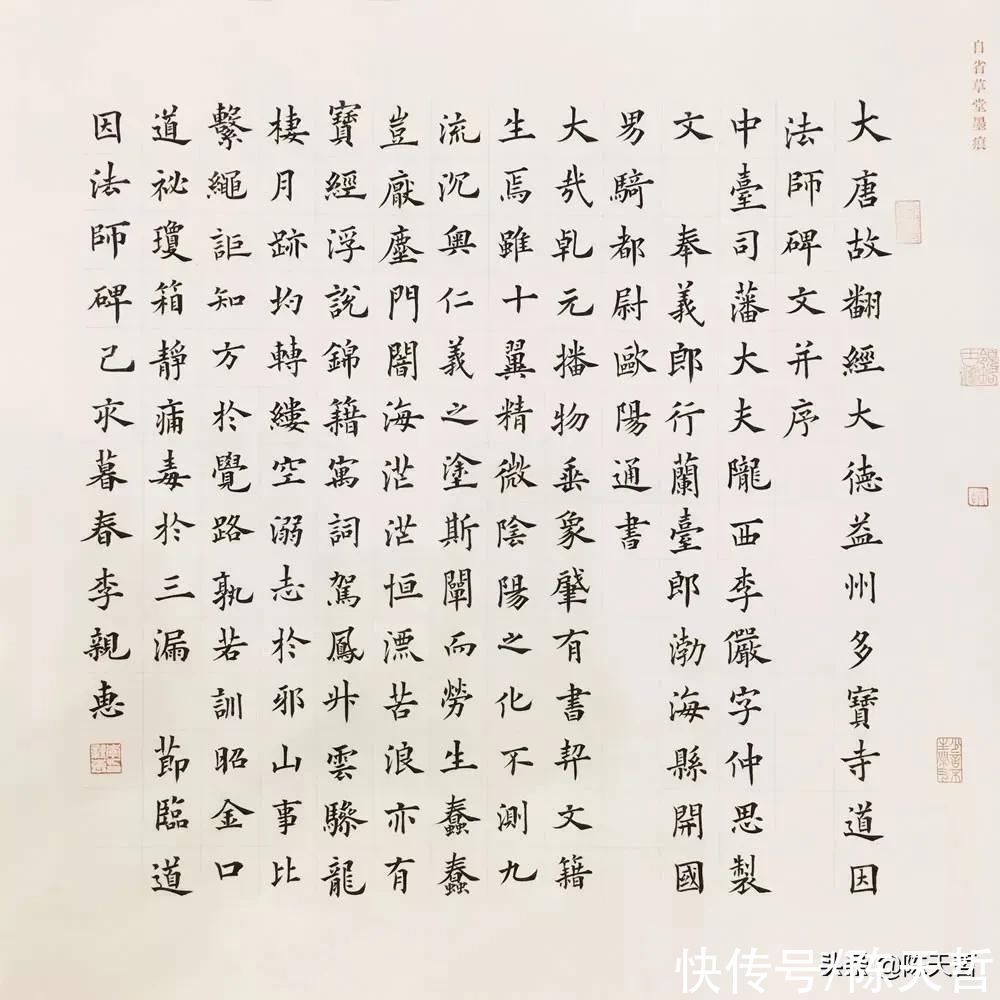 自省草堂墨痕
大唐故翻經大德益州多寶寺道因
法師碑文并序
中臺司藩大夫隴西李儼字仲思製
文 奉義郎行蘭臺郎渤海縣開國
男騎都尉歐陽通書
大哉乹元播物垂象肇有書契文籍
生焉雖十翼精微陰陽之化不測九
流沉奥仁義之塗斯闡而勞生蠢蠢
豈厭塵門闇海茫茫恒漂苦浪亦有
寶經浮說錦籍寓詞駕鳳升雲驂龍
棲月跡均轉縷空溺志於邪山事比
繫繩詎知方於覺路孰若訓昭金口
道祕瓊箱靜痛毒於三漏 節臨道
因法師碑己亥暮春李親惠
快传号/陈天哲
头条 @陈天哲